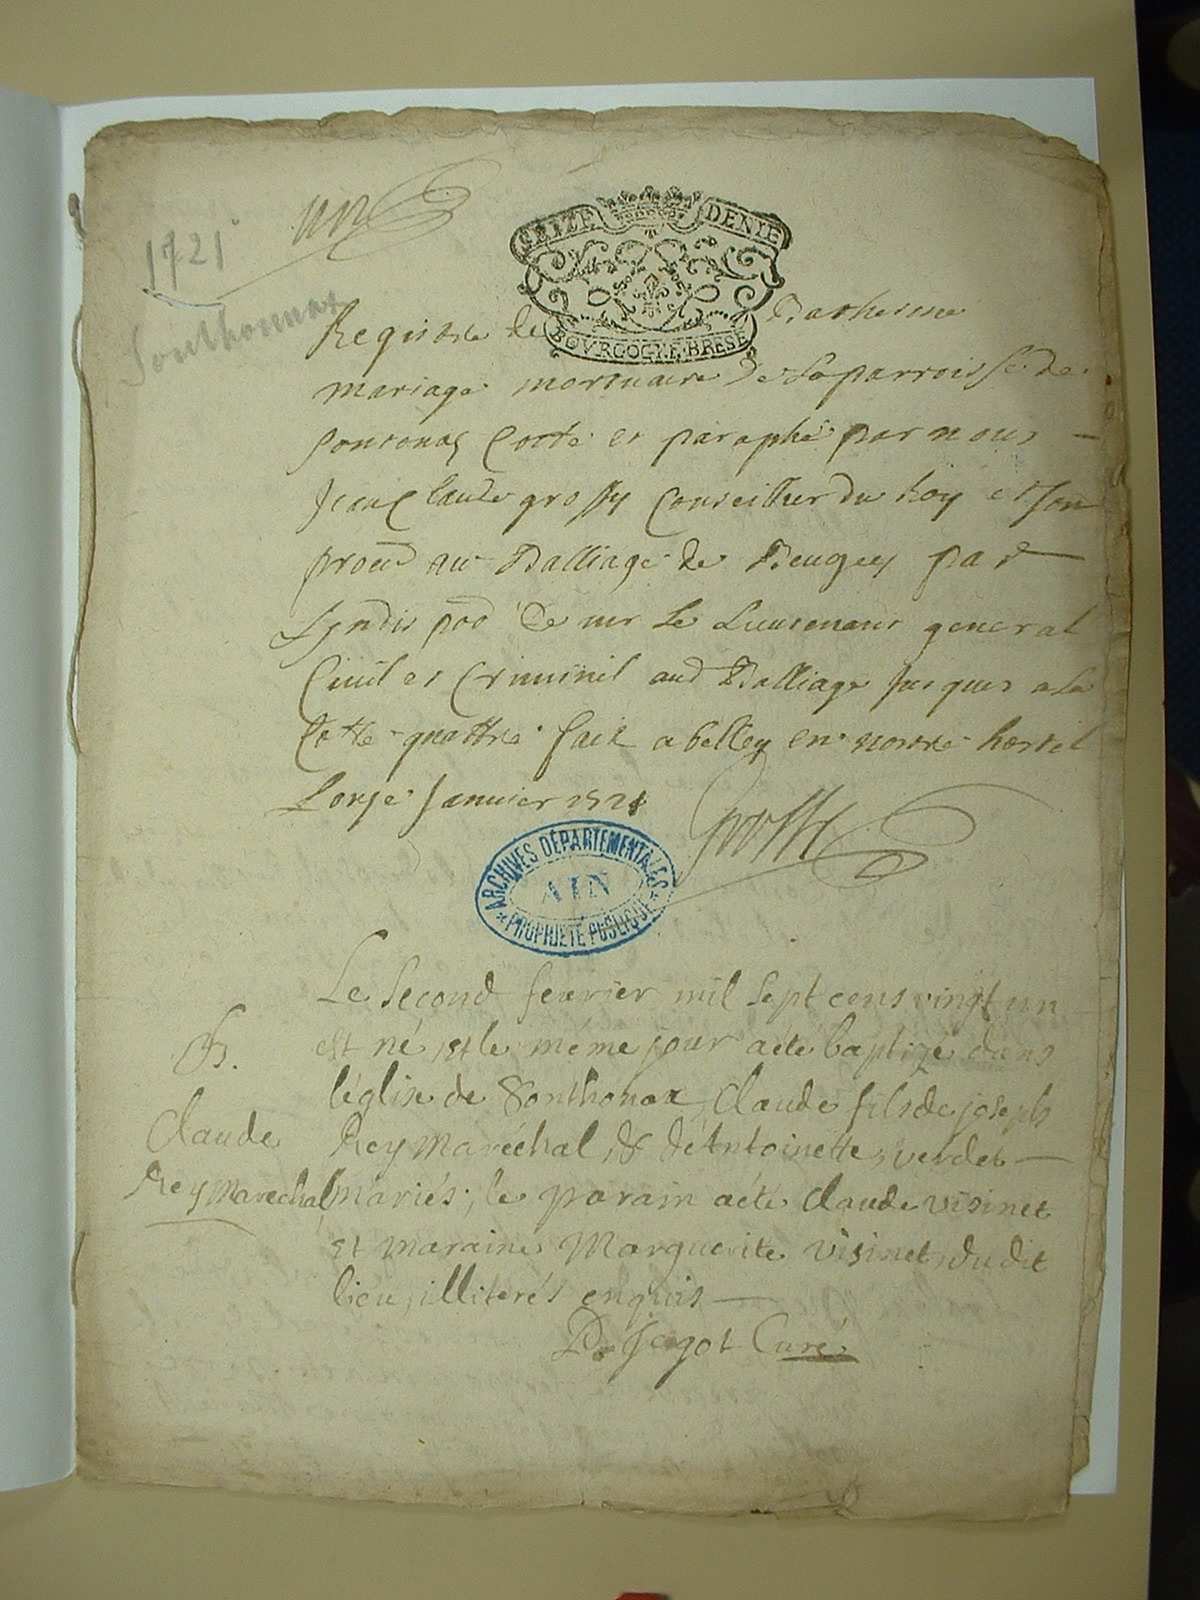 un
SEIZE DENIE
BOVRGOGNE BRESE
1721
Sonthonnax
Registre de Bathesme
mariage mortuaire de La parroisse de
Sontonas Cotté et paraphé par nous
Jean Claude grossy Conseiller du Roy et son
au Balliage de Beugey par
de mr Le Lieutenant general
Civil et Criminel aud Balliage Jusques a La
Cotte quattre fait a belley en nostre hostel
Lonze Janvier 1721
ARCHIVES DÉPARTEMENTALES
AIN
PROPRIÉTÉ PUBLIQUE
Le Second fevrier mil sept cens vingt un
est né, et le même jour a été baptizé dans
l'église de Sonthonax, Claude fils de joseph
Rey Maréchal, & de Antoinette verdet
mariés; le parain a été Claude visinet
et maraine Marguerite visinet du dit
lieu, illiterés enquis
D. Jagot Curé
B.
Claude
Rey Marechal